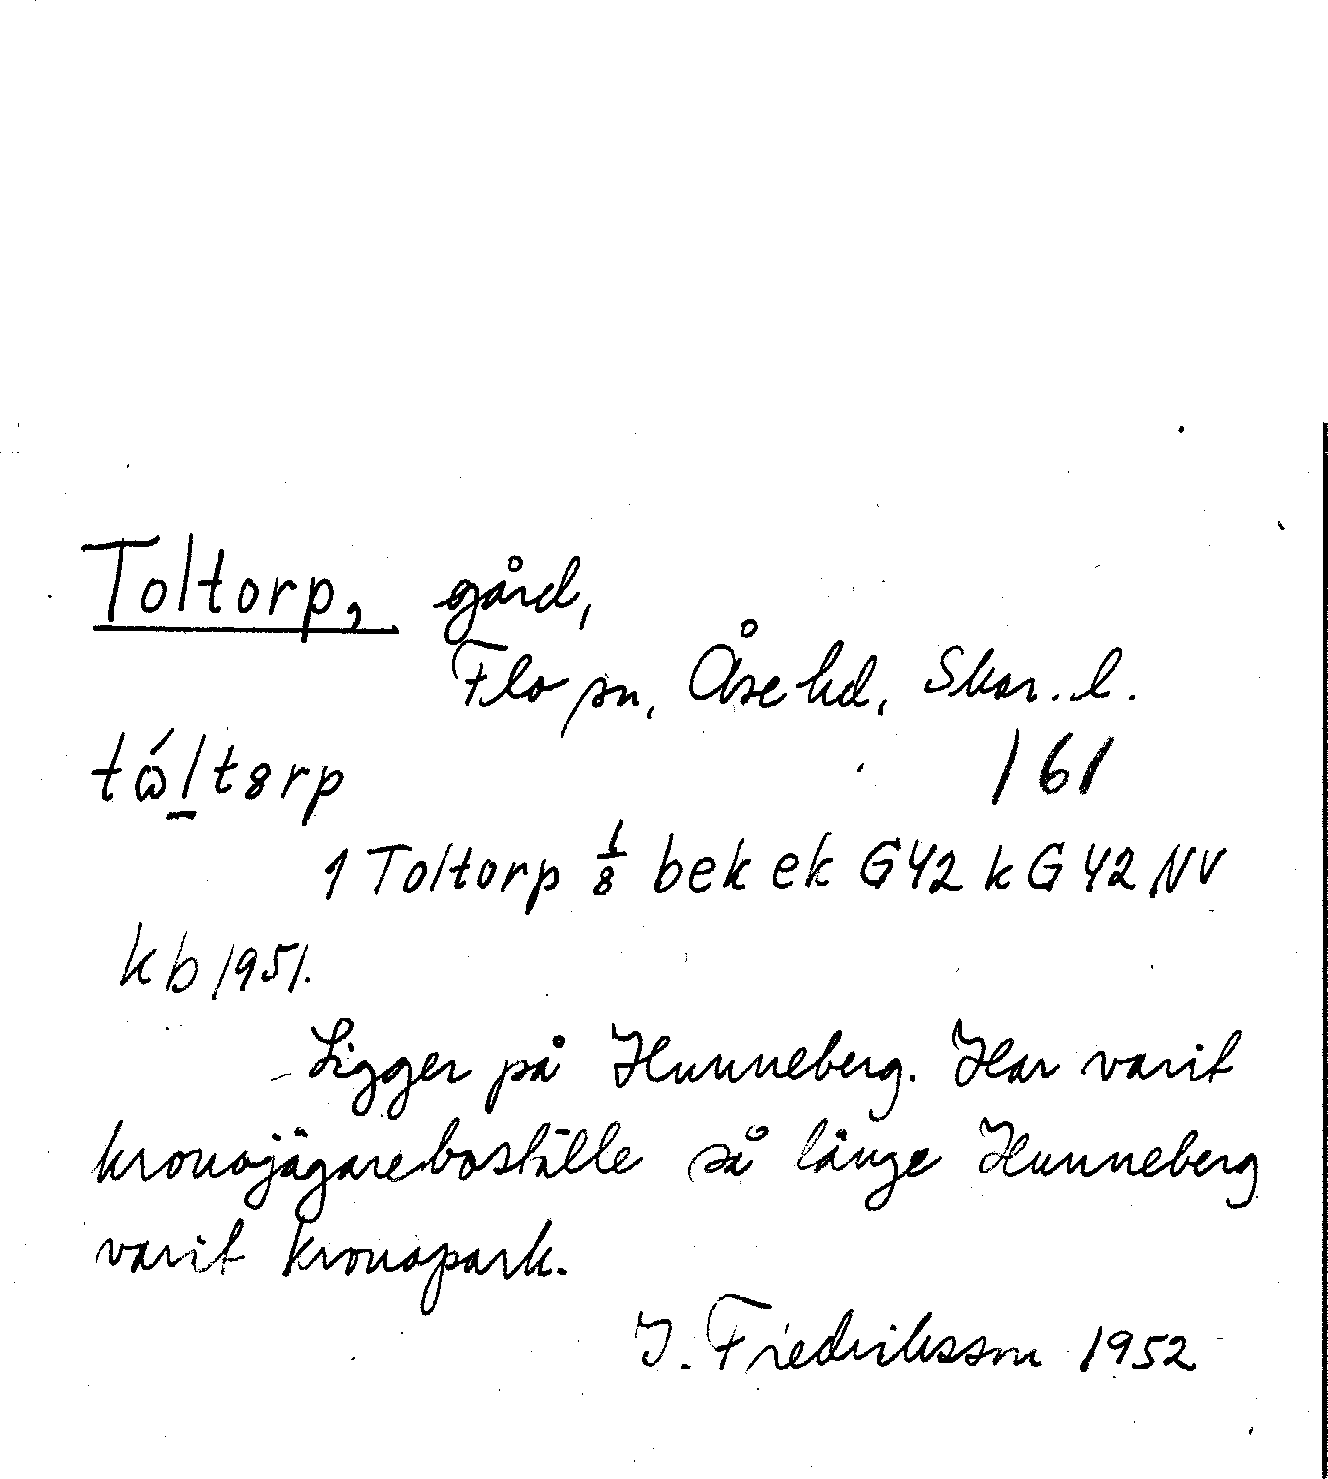 Toltorp, gård,
Flo sn, Åse hd, Skar. l.
tó̤l̠tȣrp 161
1 Toltorp 1/8 bek ek GY2 k GY2 NV
kb 1951.
Ligger på Hunneberg. Har varit
kronojägareboställe så länge Hunneberg
varit kronopark.
J. Fredriksson 1952